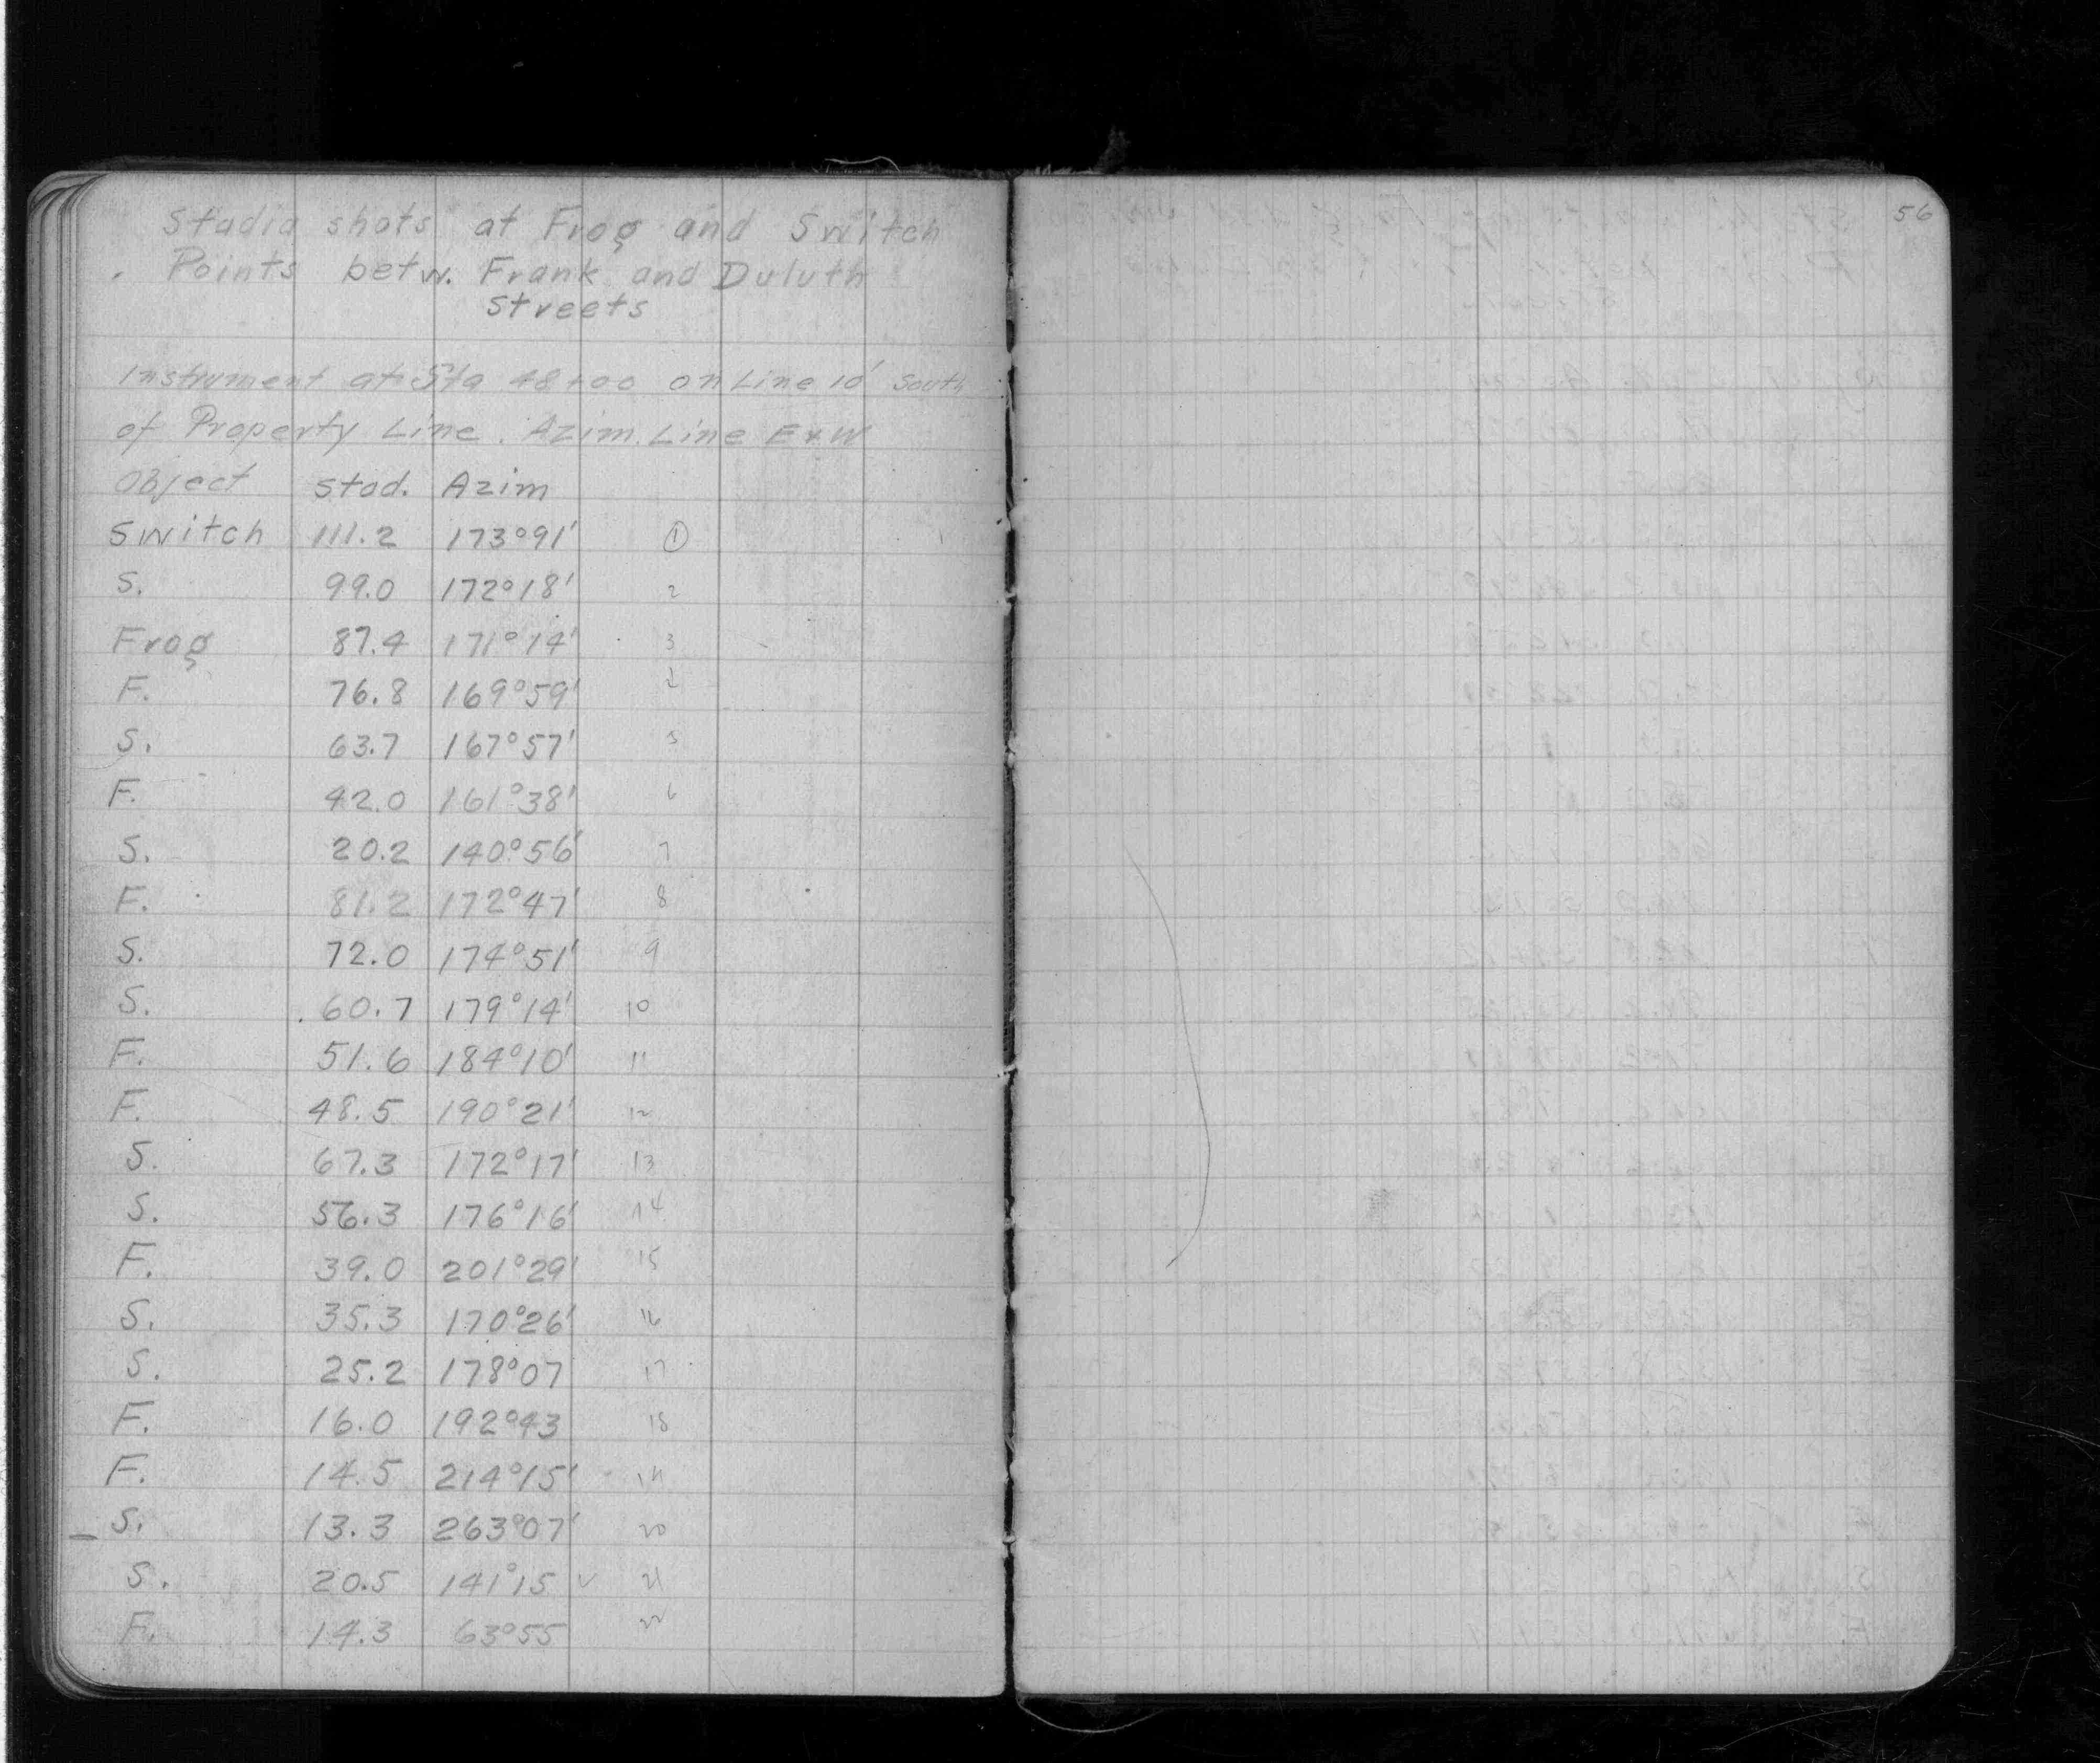 Stadia shots at Frog and Switch
Points betw. Frank and Duluth
Streets
Instrument at Sta 48+00 on Line 10' South
of Property Line. Azim. Line E & W
Object stad. Azim
Switch 111.2 173°41' ①
S. 99.0 172°18' 2
Frog 87.4 171°14' 3
F. 76.8 169°59' 4
S. 63.7 167°57' 5
F. 42.0 161°38' 6
S. 20.2 140°56' 7
F. 81.2 172°47' 8
S. 72.0 174°51' 9
S. 60.7 179°14' 10
F. 51.6 184°10' 11
F. 48.5 190°21' 12
S. 67.3 172°17' 13
S. 56.3 176°16' 14
F. 39.0 201°29' 15
S. 35.3 170°26' 16
S. 25.2 178°07 17
F. 16.0 192°43 18
F. 14.5 214°15' 19
S. 13.3 263°07' 20
S. 20.5 141°15 ✓ 21
F. 14.3 63°55 22
56